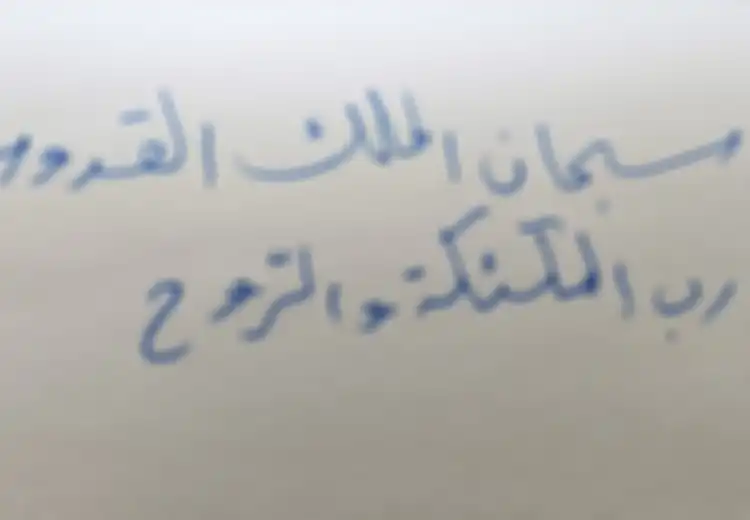 سبحان الملك القدو
رب الملئكة والروح